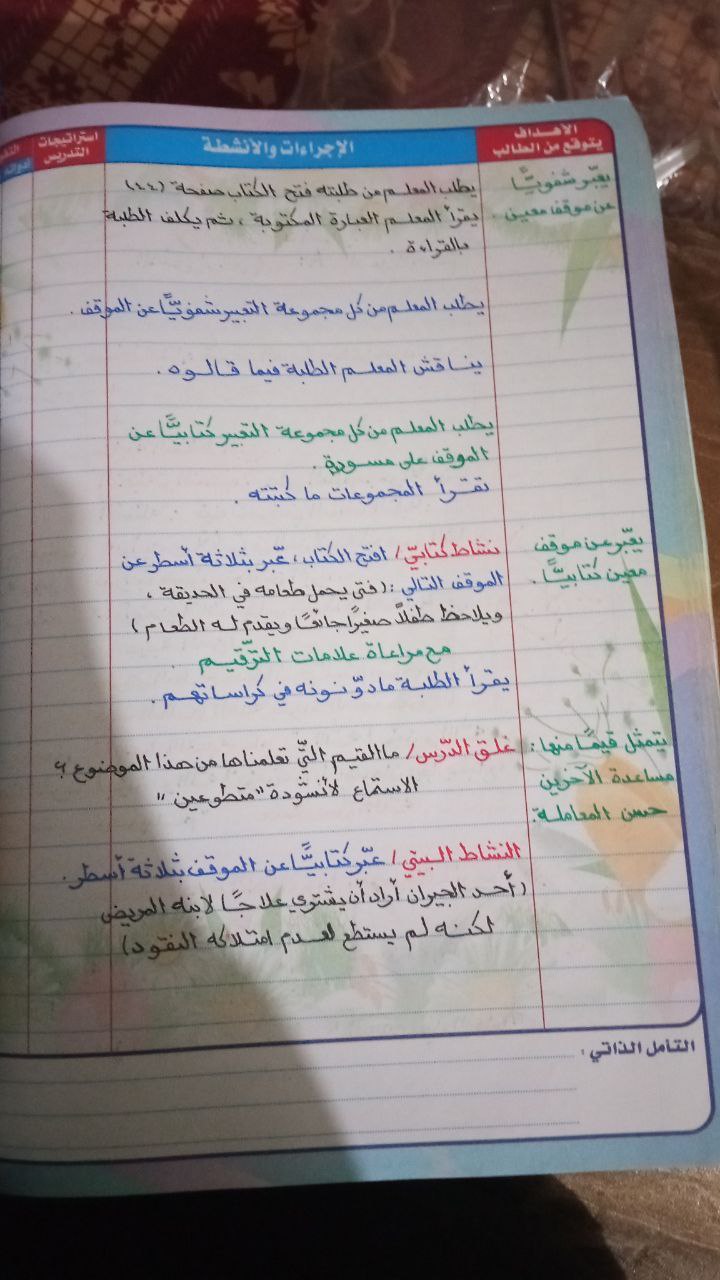 الأهداف
يتوقع من الطالب
الإجراءات والأنشطة
استراتيجيات
التدريس
يعبّر شفويًّا
عن موقف معين.
يطلب المعلم من طلبته فتح الكتاب صفحة (٤٤)
يقرأ المعلم العبارة المكتوبة، ثم يكلف الطلبة
بالقراءة.
يطلب المعلم من كل مجموعة التعبير شفويًّا عن الموقف.
يناقش المعلم الطلبة فيما قالوه.
يطلب المعلم من كل مجموعة التعبير كتابيًّا عن
الموقف على مسودة.
تقرأ المجموعات ما كتبته.
يعبّر عن موقف
معين كتابيًّا.
نشاط كتابيّ/ افتح الكتاب، عبّر بثلاثة أسطر عن
الموقف التالي: (فتى يحمل طعامه في الحديقة،
ويلاحظ طفلاً صغيرًا جائعًا ويقدم له الطعام)
مع مراعاة علامات الترّقيم.
يقرأ الطلبة ما دوّنونه في كراساتهم.
يتمثل قيمًا منها:
مساعدة الآخرين
حسن المعاملة.
غلق الدّرس/ ما القيم التيّ تعلمناها من هذا الموضوع؟
الاستماع لأنشودة "متطوعين"
النشاط البيتي/ عبّر كتابيًّا عن الموقف بثلاثة أسطر.
(أحد الجيران أراد أن يشتري علاجًا لابنه المريض
لكنه لم يستطع لعدم امتلاكه النقود)
التأمل الذاتي: